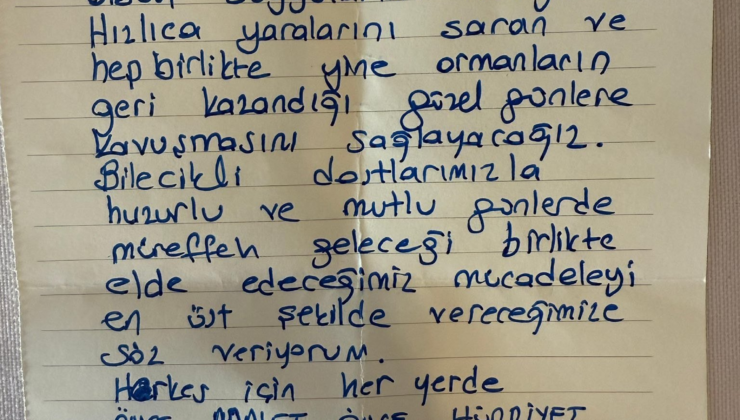 Hızlıca yaralarını saran ve
hep birlikte yine ormanların
geri kazandığı güzel günlere
kavuşmasını sağlayacağız.
Bilecikli dostlarımızla
huzurlu ve mutlu günlerde
müreffeh geleceği birlikte
elde edeceğimiz mücadeleyi
en üst şekilde vereceğimize
söz veriyorum.
Herkes için her yerde
HÜRRİYET